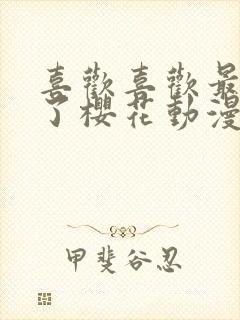 喜歡喜歡最
了櫻花動漫
甲斐谷忍